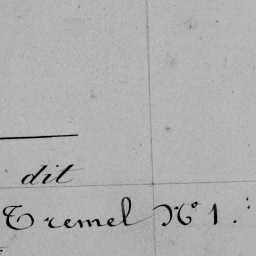 dit
Tremel N° 1.